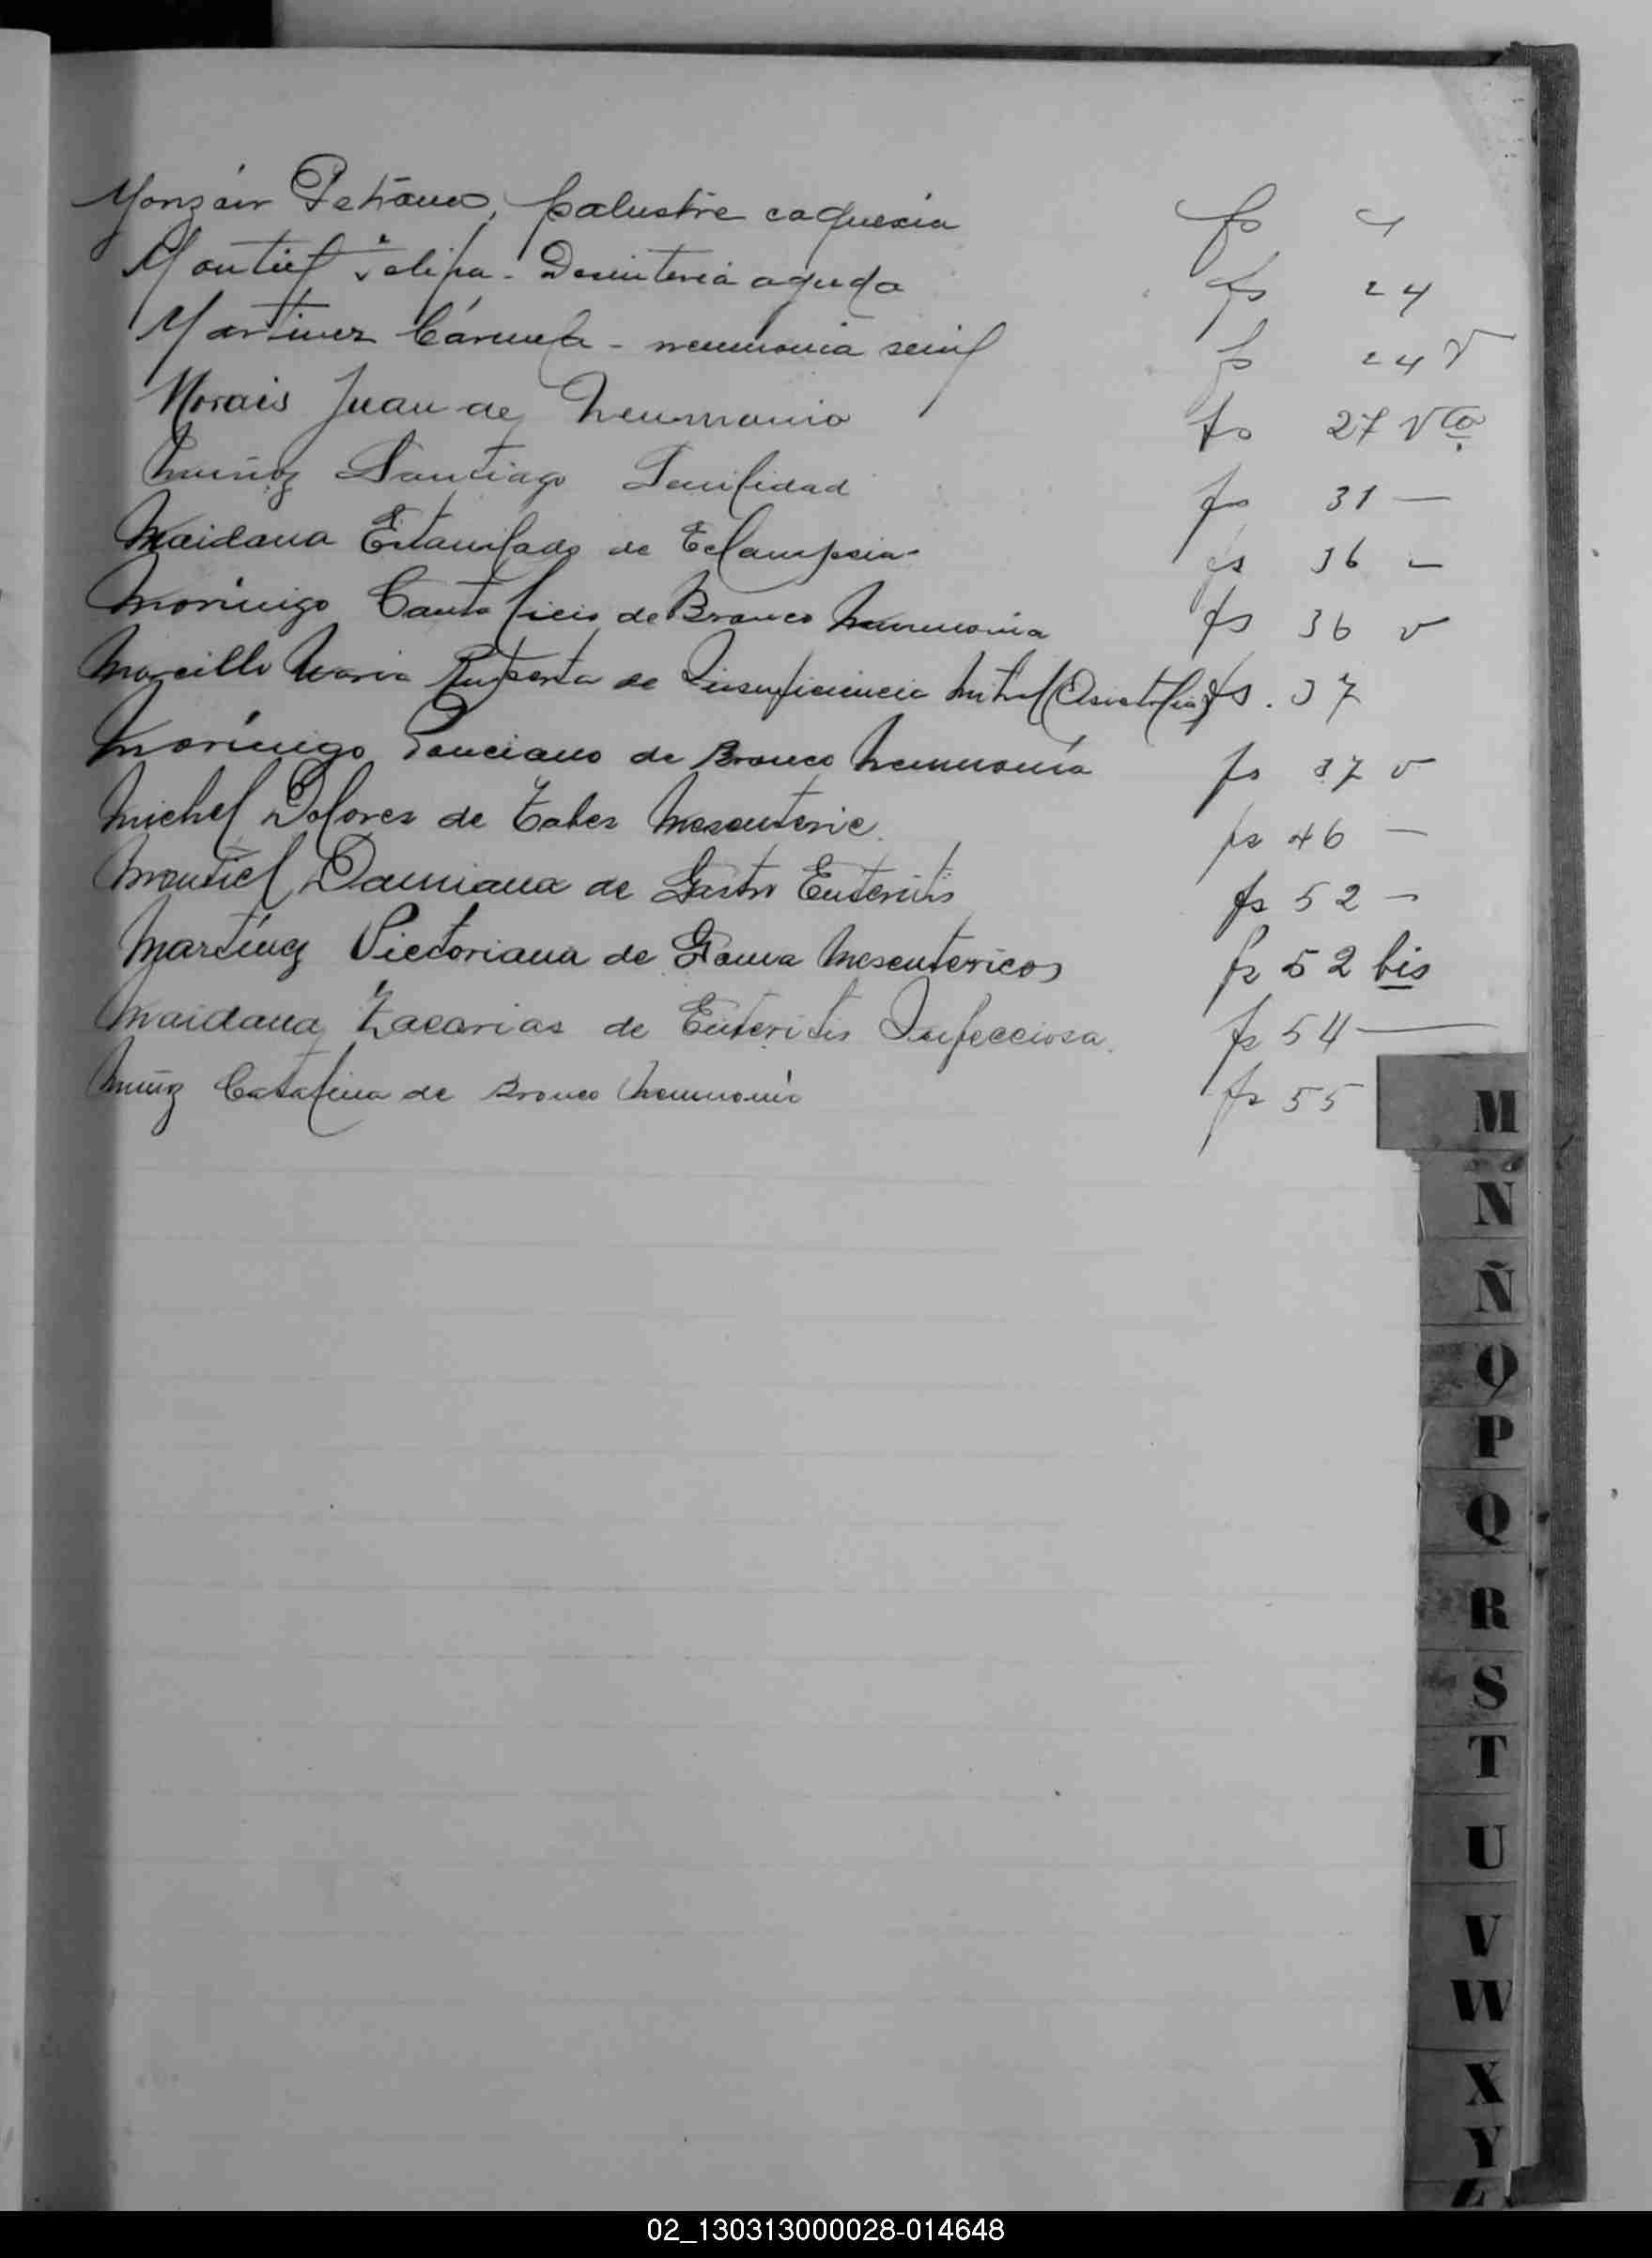 Monzón Petrona, palustre caquexia fs 4
Montiel Felipa - Desinteria aguda fs 24
Martinez Cármela - neumonia senil fs 24 V
Morais Juan de Neumonia fs 27 Vta
Muñoz Santiago Senilidad fs 31 —
Maidana Estanilado de Eclampsia fs 36 —
Morinigo Canta licio de Bronco Neumonia fs 36 v
Morcillo Maria Ruperta de Insuficiencia Mitral (Asistolia) fs. 37
Morínigo Ponciano de Bronco Neumonía fs 37 v
Michel Dolores de Tabes Mesenteric fs 46 —
Montiel Damiana de Gastro Enteritis fs 52 —
Martínez Victoriana de Goma Mesentericos fs 52 bis
Maidana Zacarias de Enteritis Infecciosa fs 54 —
Muñoz Catalina de Bronco Neumonía fs 55
M
N
Ñ
O
P
Q
R
S
T
U
V
W
X
Y
Z
02_130313000028-014648